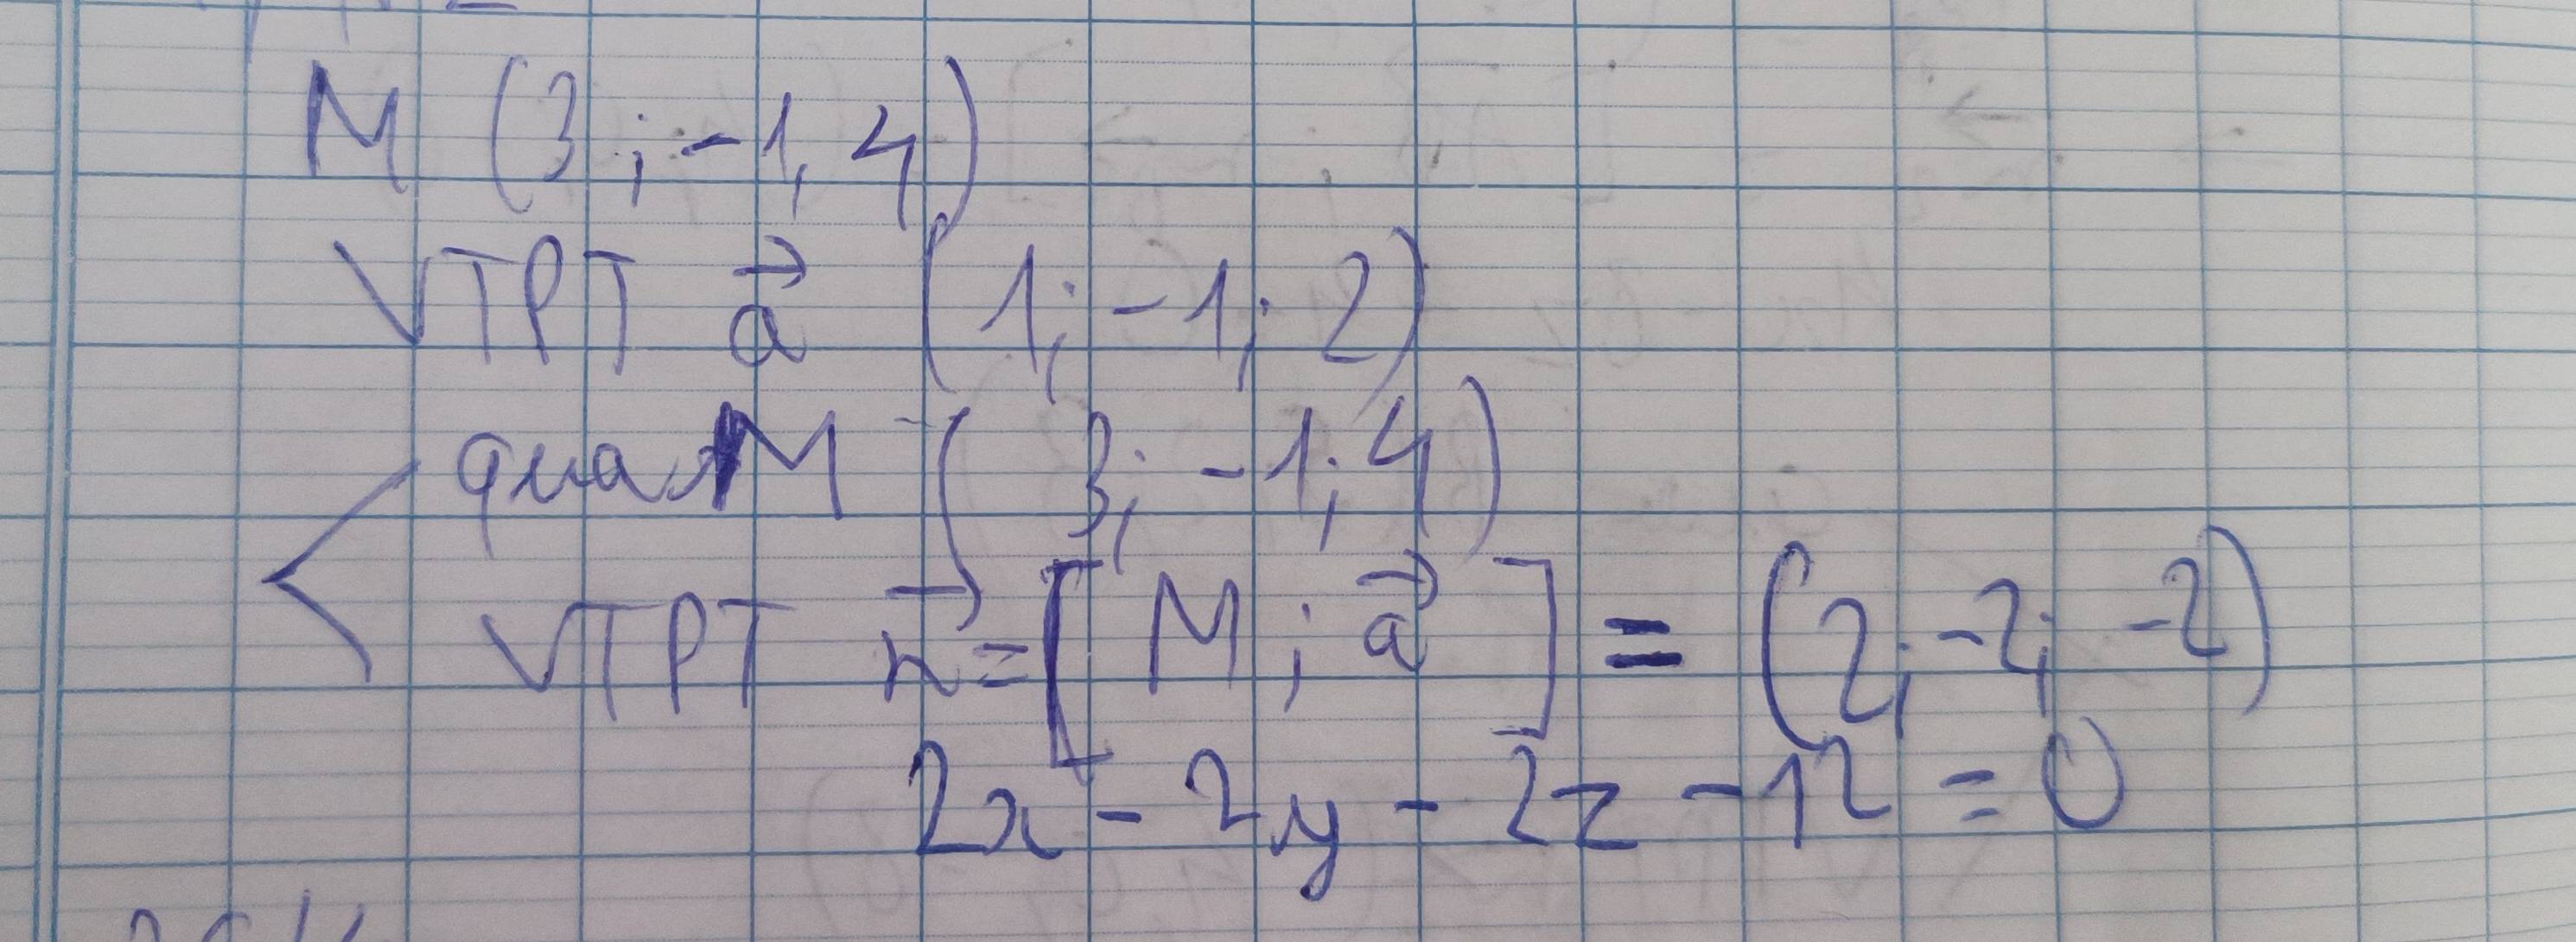 M (3; -1, 4)
VTPT a⃗ (1; -1; 2)
qua M (3; -1; 4)
VTPT n⃗ = [M; a⃗] = (2; -2; -2)
2x - 2y - 2z - 12 = 0